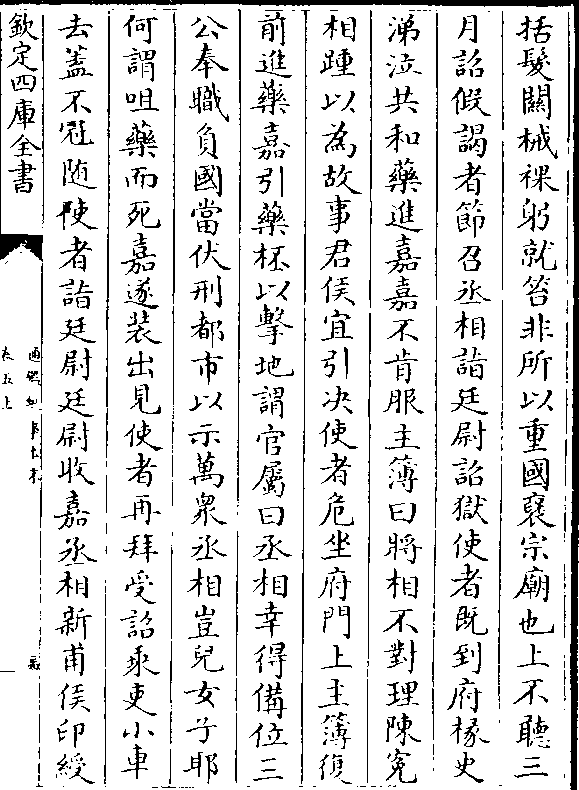 括髮關械裸躬就笞非所以重國襃宗廟也上不聽三
月詔假謁者節召丞相詣廷尉詔獄使者既到府掾史
涕泣共和藥進嘉嘉不肯服主簿曰將相不對理陳寃
相踵以為故事君侯宜引决使者危坐府門上主簿復
前進藥嘉引藥杯以擊地謂官屬曰丞相幸得備位三
公奉職負國當伏刑都市以示萬衆丞相豈兒女子耶
何謂咀藥而死嘉遂裝出見使者再拜受詔乘吏小車
去葢不冠随使者詣廷尉廷尉收嘉丞相新甫侯印綬
欽定四庫全書
通鑑紀事本末
卷五上